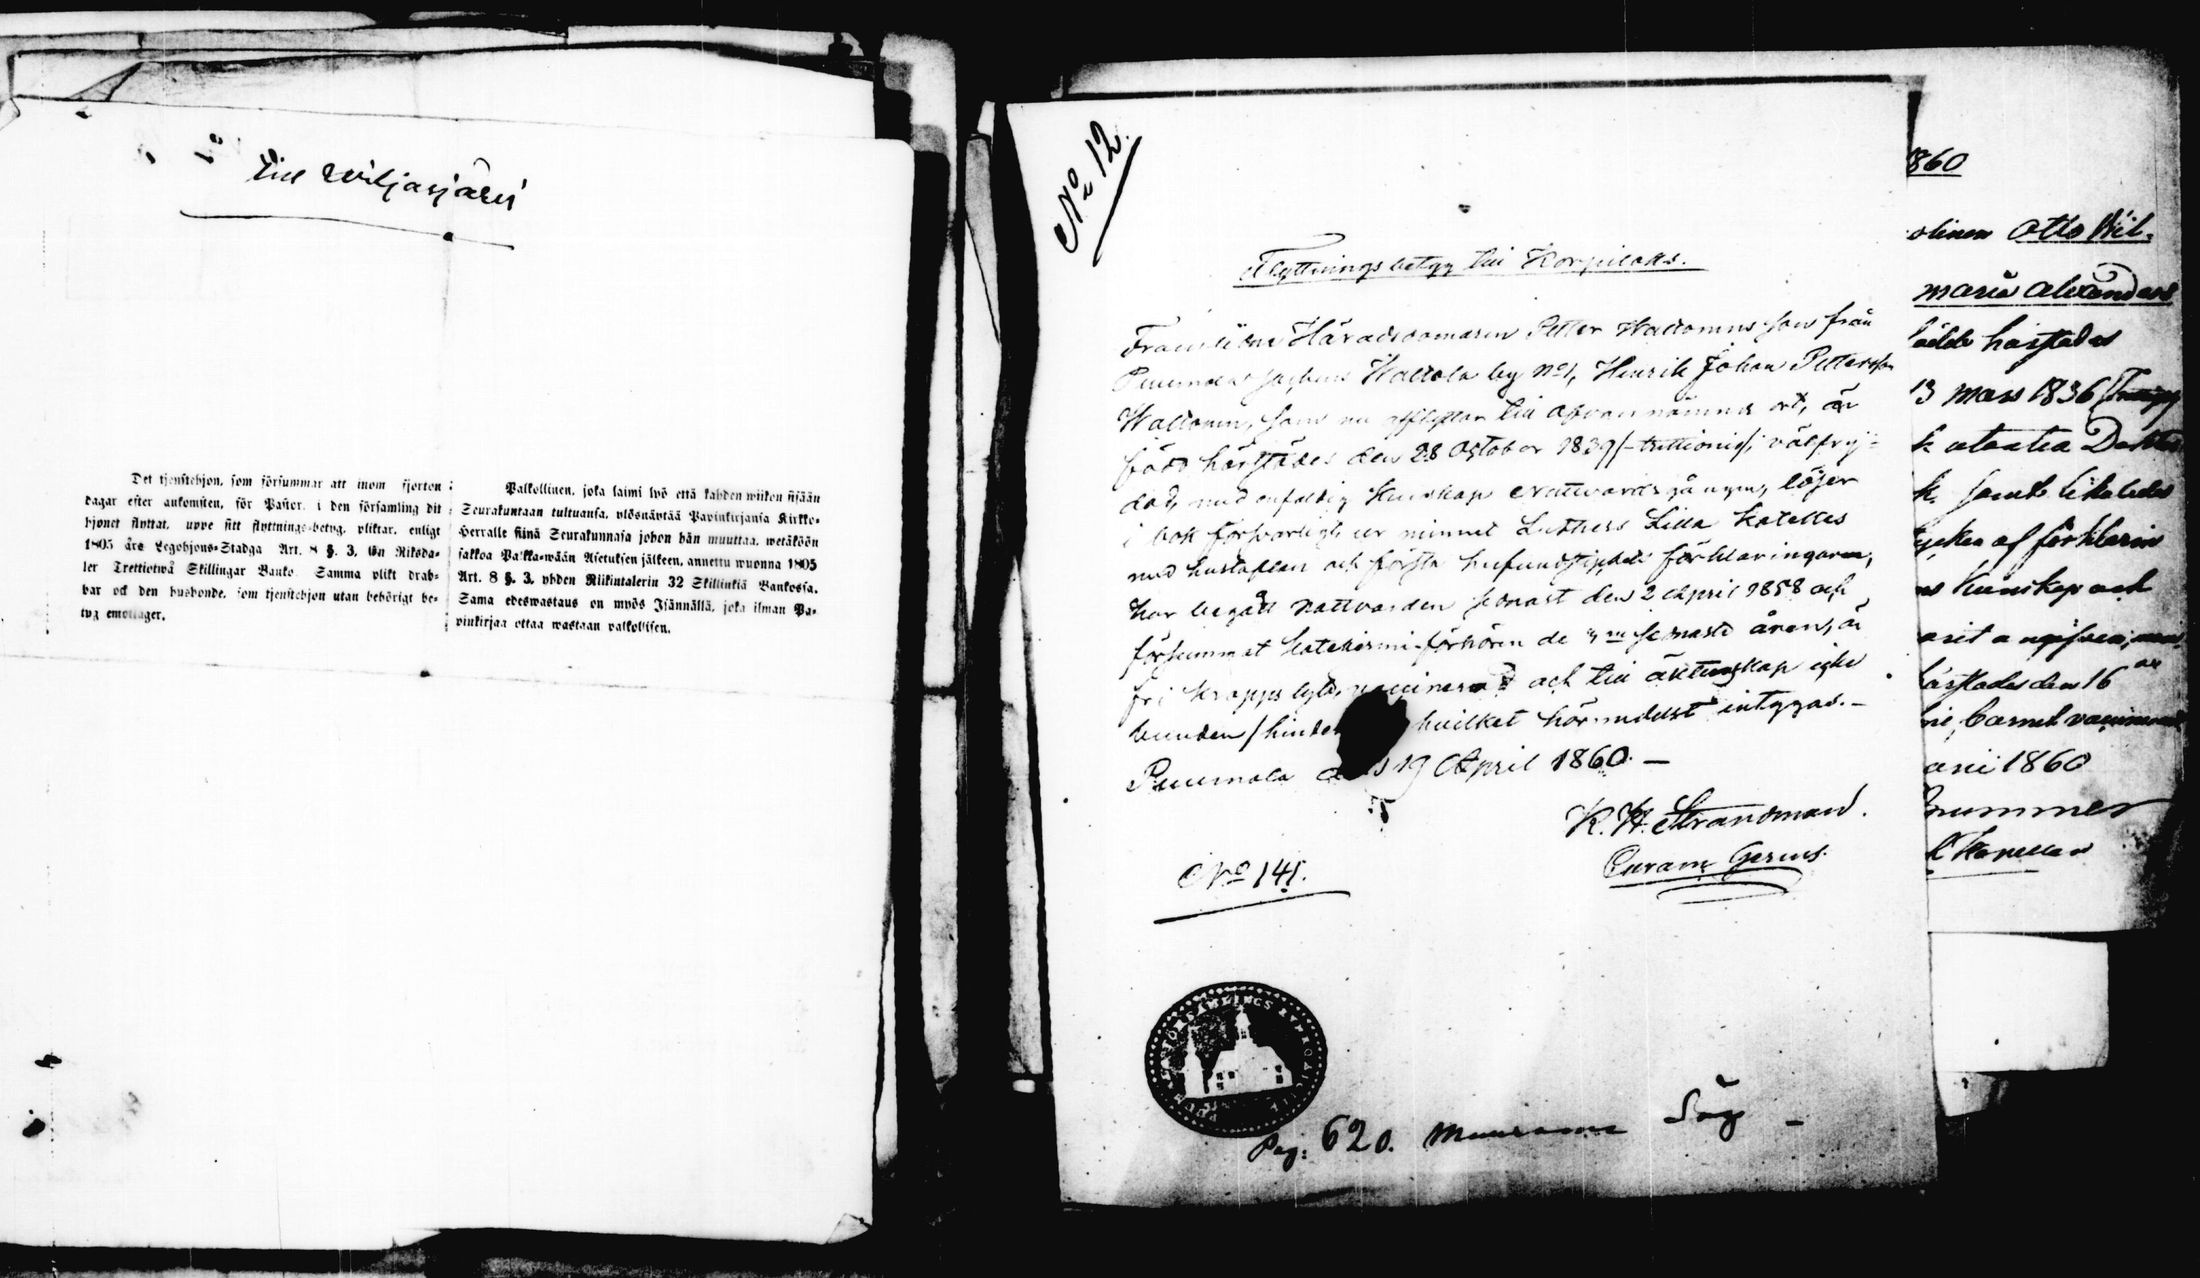 till Wiljasjärvi
Det tjenstehjon, som försummar att inom fjorton
dagar efter ankomsten, för Pastor i den församling dit
hjonet flyttat, uppe sitt flyttnings-betyg, pliktar, enligt
1805 års Legohjons-Stadga Art. 8 §. 3, En Riksda-
ler Trettiotwå Skillingar Banko. Samma plikt drab-
bar ock den husbonde, som tjenstehjon utan behörigt be-
tyg emottager.
Palkollinen, joka laimi lyö että kahden wiikon sisään
Seurakuntaan tultuansa, ylösnäyttää Papinkirjansa Kirkko-
Herralle siinä Seurakunnasa johon hän muuttaa, wetäköön
sakkoa Palkka-wään Asetuksen jälkeen, annettu wuonna 1805
Art. 8 §. 3, yhden Riikintalerin 32 Skillinkiä Bankossa.
Sama edeswastaus on myös Isännällä, joka ilman Pa-
pinkirjaa ottaa wastaan palkollisen.
No 12.
Flyttningsbetyg till Korpilaks.
Framlidne Häradsdomaren Petter Waltonens son från
Puumala sockens Waltola by No 1, Henrik Johan Pettersson
Waltonen, som nu afflyttar till ofvannämnde ort, är
född härstädes den 28 October 1839 /-trettionio/, välfrej-
dad, med enfaldig kunskap nattvardsgången, löser
i bok försvarligt, ur minnet Luthers Lilla kateches
med hustaflan och första hufvudstyckets förklaringarne,
har begått nattvarden senast den 2 April 1858 och
försummat katekismi-förhören de 3ne senaste åren, är
fri kropps lyte, vaccinerad och till äktenskap icke
bunden / hinder hvilket härmedelst intygas.-
Puumala den 19 April 1860. -
K. H. Strandman.
Curam Gerens.
No 141.
PUUMALA FÖRSAMLINGS KYRKOSIGILL
Pag: 620. Muurame Såg -
1860
olinen Otto Wil-
Maria Alexanders
födde härstädes
13 Mars 1836
samt
stycken af förklarin
ns kunskap och
härstädes den 16
Barnet vaccinerat
1860
Brummer
Kapellan